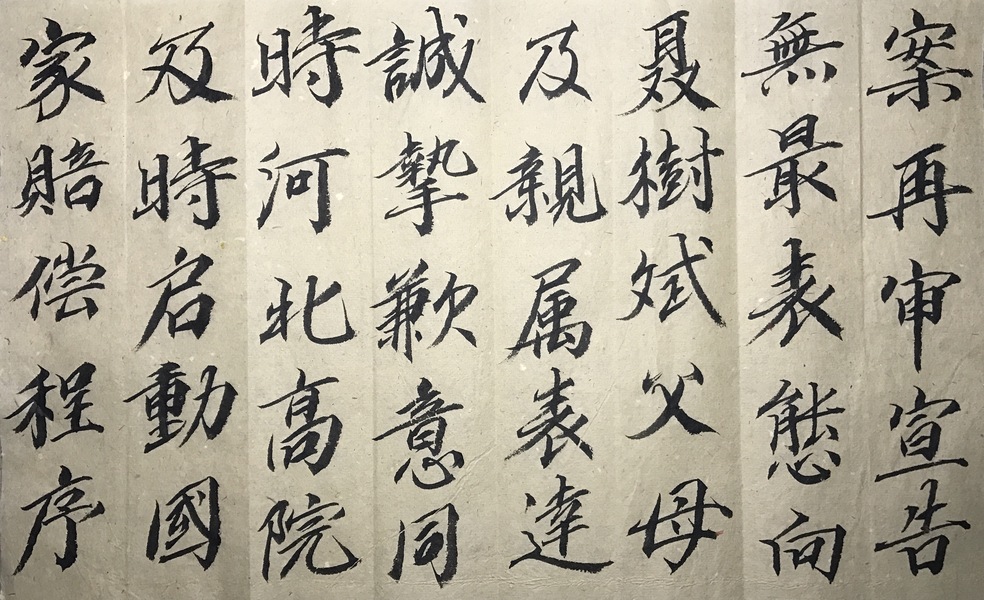 案再审宣告
無最表態向
聂樹斌父母
及親属表達
誠摯歉意同
時河北高院
及時启動國
家賠偿程序